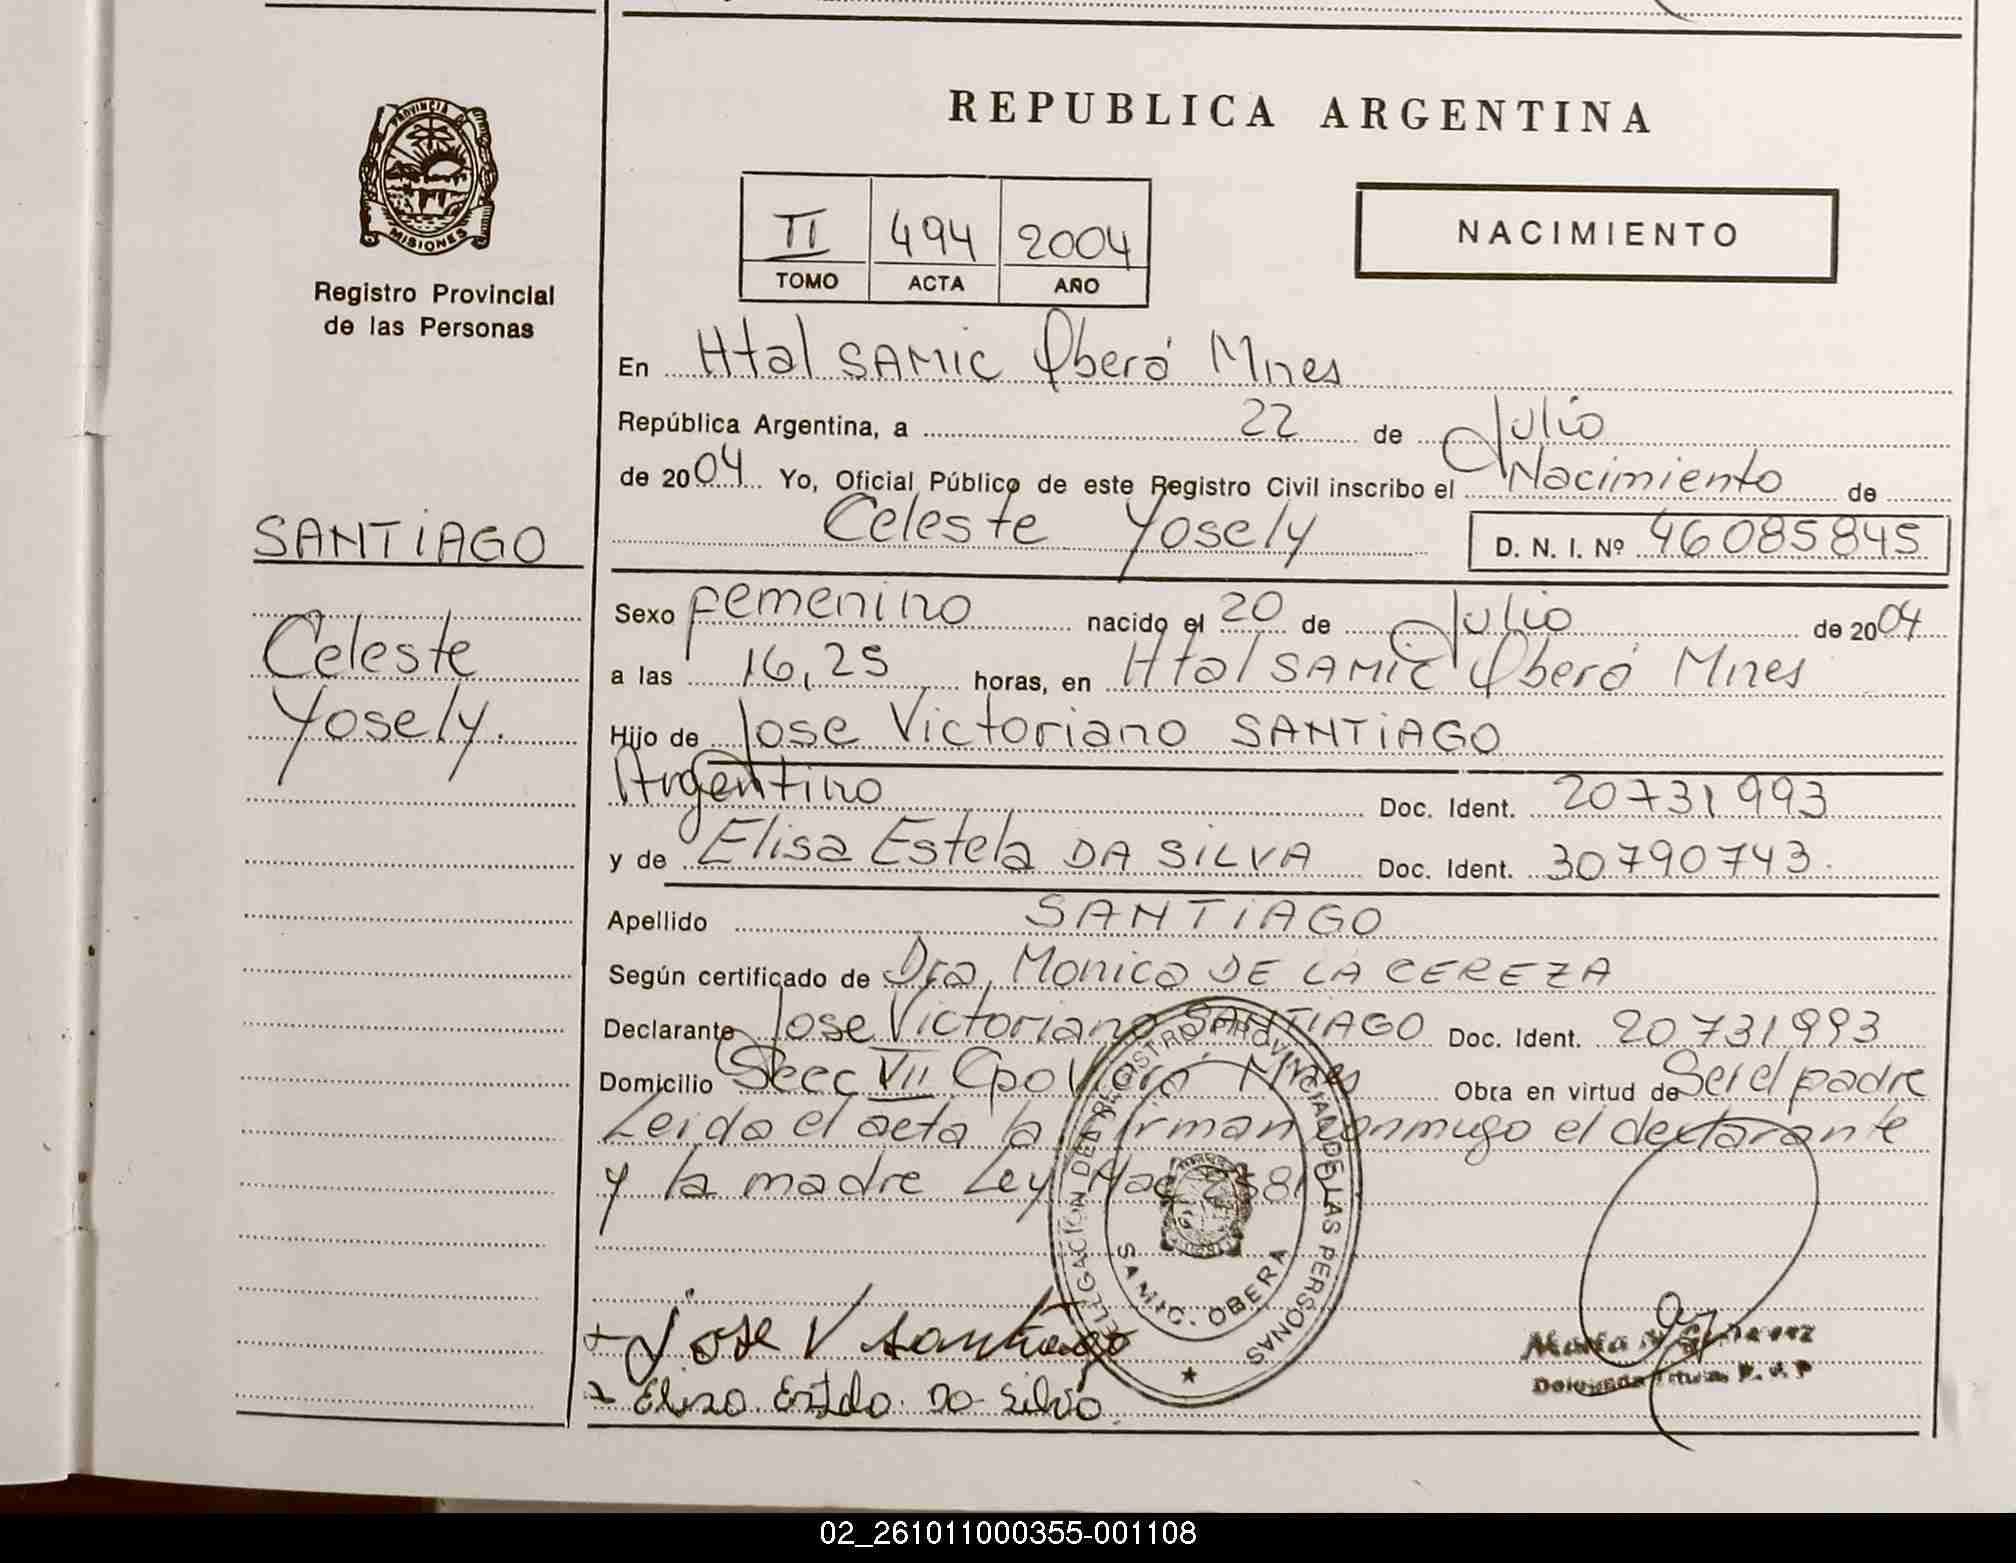 PROVINCIA DE
MISIONES
Registro Provincial
de las Personas
SANTIAGO
Celeste
Yosely.
REPUBLICA ARGENTINA
II 494 2004
TOMO ACTA AÑO
NACIMIENTO
En Htal SAMIC Oberá Mnes
República Argentina, a 22 de Julio
de 2004 Yo, Oficial Público de este Registro Civil inscribo el Nacimiento de
Celeste Yosely D. N. I. Nº 46085845
Sexo femenino nacido el 20 de Julio de 2004
a las 16,25 horas, en Htal SAMIC Oberá Mnes
Hijo de Jose Victoriano SANTIAGO
Argentino Doc. Ident. 20731993
y de Elisa Estela DA SILVA Doc. Ident. 30790743.
Apellido SANTIAGO
Según certificado de Dra, Monica DE LA CEREZA
Declarante Jose Victoriano SANTIAGO Doc. Ident. 20731993
Domicilio Secc VII Cpo Viera Mnes Obra en virtud de Ser el padre
Leida el acta la firman conmugo el declarante
y la madre Ley Nac
DELEGACION DEL REGISTRO PROVINCIAL DE LAS PERSONAS
SAMIC. OBERA
Jose V Santiago
Elisa Estela Da Silva
02_261011000355-001108